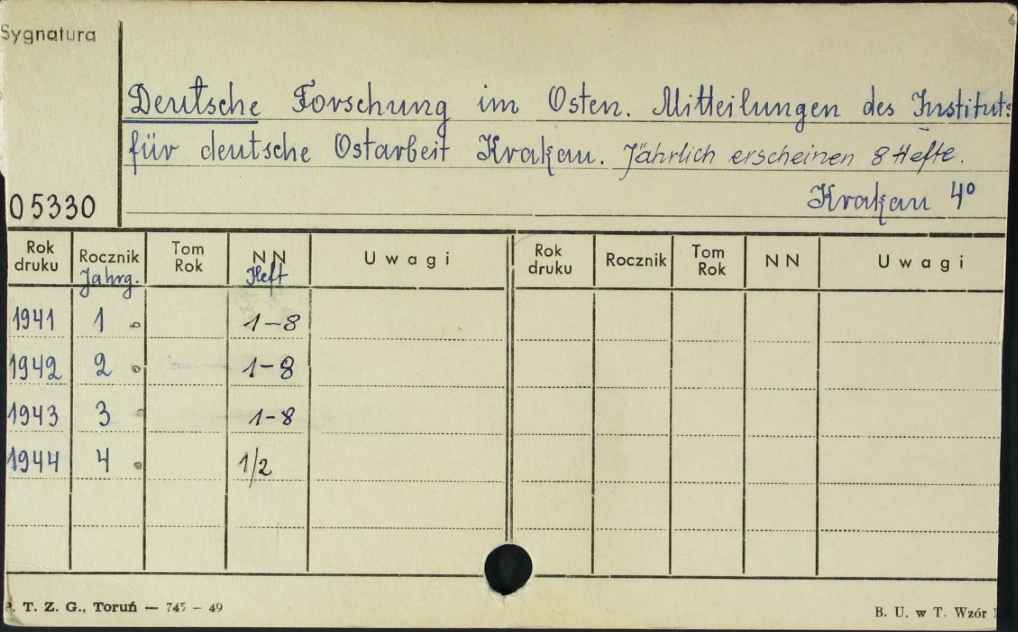 Sygnatura
Deutsche Forschung im Osten. Mitteilungen des Instituts
für deutsche Ostarbeit Krakau. Jährlich erscheinen 8 Hefte.
05330
Krakau 4°
Rok druku Rocznik Tom Rok NN Uwagi Rok druku Rocznik Tom Rok NN Uwagi
Jahrg. Heft
1941 1 1-8
1942 2 1-8
1943 3 1-8
1944 4 1/2
T. Z. G., Toruń — 745 - 49
B. U. w T. Wzór